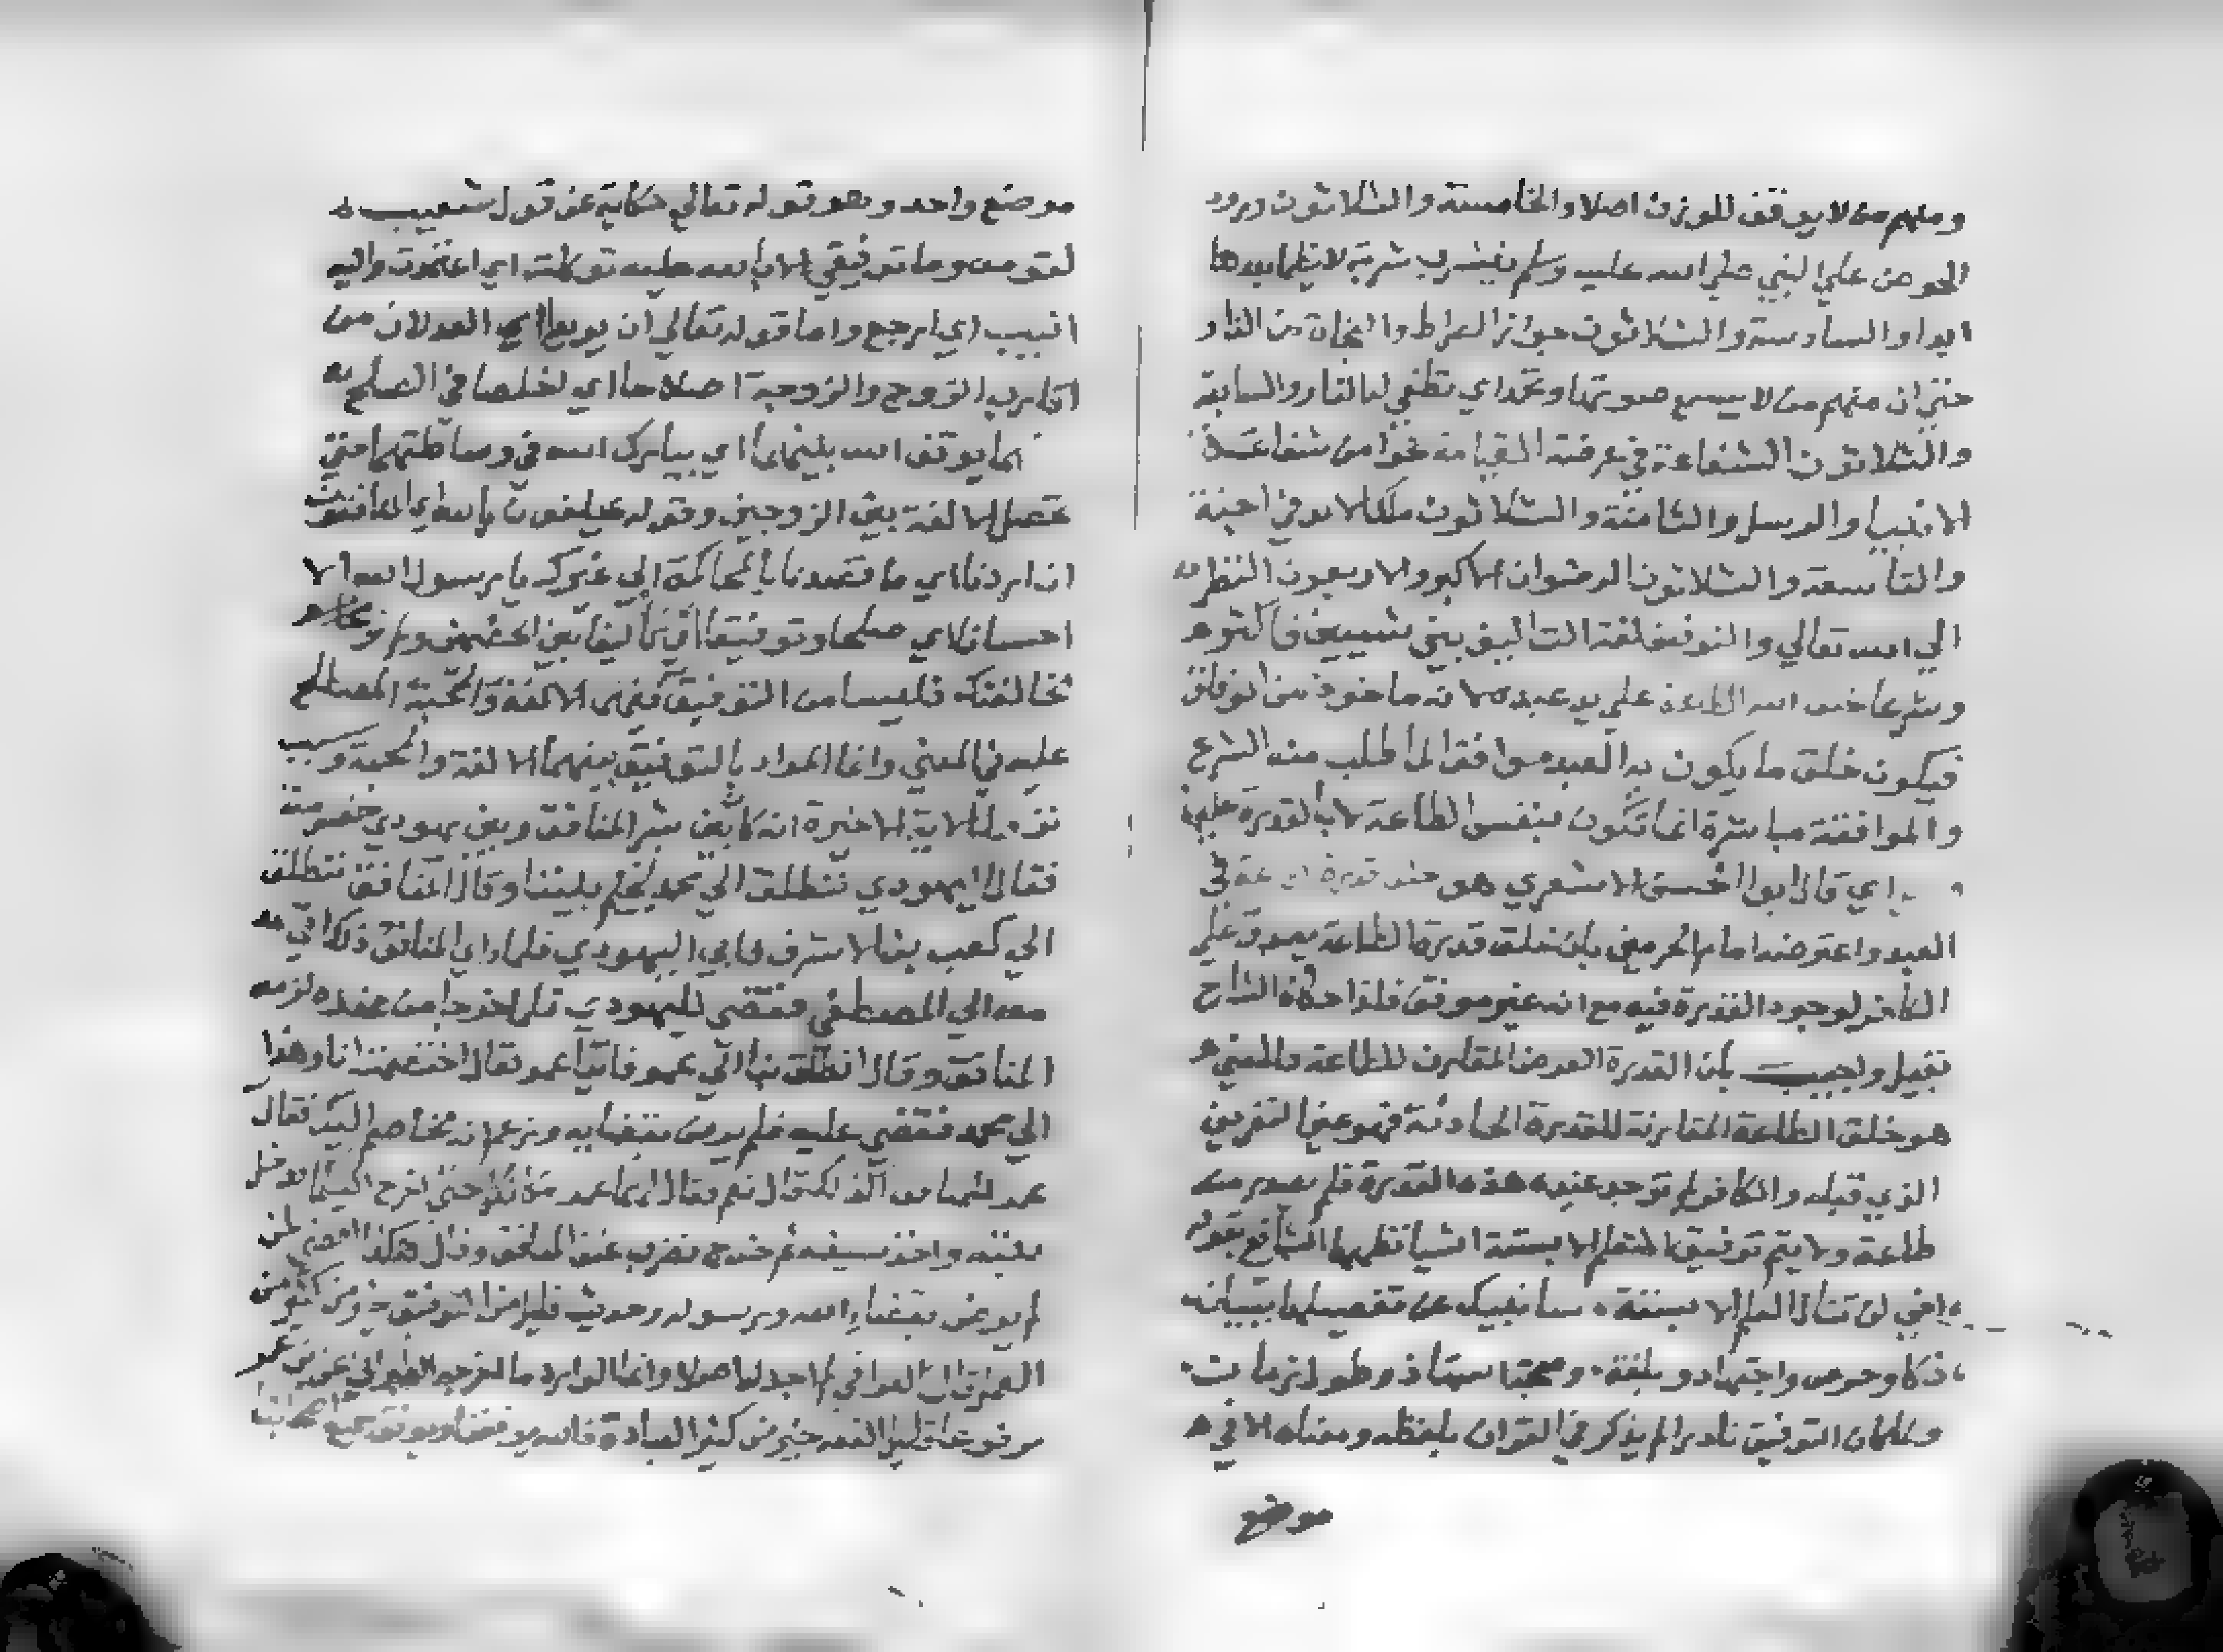 ومنهم من لا يوقف للوزن اصلا والخامسة والثلاثون ورود
الحوض علي النبي صلي الله عليه وسلم فيشرب شربة لا يظما بعدها
ابدا والسادسة والثلاثون جواز الصراط والنجاة من النار
حتي ان منهم من لا يسمع صوتها وتخمد اي تطفي لها النار والسابعة
والثلاثون الشفاعة في عرصة القيامة نحوا من شفاعة
الانبيا والرسل والثامنة والثلاثون ملك الابد في الجنة
والتاسعة والثلاثون الرضوان الاكبر والاربعون النظر
الي الله تعالي والتوفيق لغة التاليف بين شيين فاكثر
وشرعا خلق الله الطاعة علي يد عبده لانه ماخوذ من الوفاق
فيكون خلق ما يكون به العبد موافقا لما طلب منه الشرع
والموافقة مباشرة انما تكون بنفس الطاعة لا بالقدرة عليها
قال ابوا الحسن الاشعري هو خلق قدرة الطاعة في
العبد واعترضه امام الحرمين بان خلق قدرة الطاعة يصدق علي
الكافر لوجود القدرة فيه مع انه غير موفق فلذا حكاه الشارح
بقيل واجيب بان القدرة العرض المقارن للطاعة والمعني
هو خلق الطاعة المقارنة للقدرة الحادثة فهو عين التعريف
الذي قبله والكافر لم توجد عنده هذه القدرة فلم يصدر منه
طاعة ولا يتم توفيق المتعلم الا بستة اشيا نظمها الشافعي بقوله
اخي لن تنال العلم الا بستة سانبيك عن تفصيلها ببيان
ذكا وحرص واجتهاد وبلغة وصحبة استاذ وطول زمان
ولما كان التوفيق نادرا لم يذكر في القران بلفظه ومعناه الا في
موضع
موضع واحد وهو قوله تعالي حكاية عن قول شعيب
لقومه وما توفيقي الا بالله عليه توكلت اي اعتمدت واليه
انيب اي ارجع واما قوله تعالي ان يريدا اي العدلان من
اقارب الزوج والزوجة اصلاحا اي اخلصا في الصلح
لهما يوفق الله بينهما اي يبارك الله في وساطتهما حتي
تحصل الالفة بين الزوجين وقوله يحلفون بالله اي المنافقون
ان اردنا اي ما قصدنا بالمحاكمة الي غيرك يا رسول الله الا
احسانا اي صلحا وتوفيقا اي تاليفا بين الخصمين ولم نرد
مخالفتك فليسا من التوفيق بمعني الالفة والمحبة المصطلح
عليه في المعني وانما المراد بالتوفيق بينهما الالفة والمحبة وسبب
نزول الاية الاخيرة انه كان بين بشر المنافق وبين يهودي خصومة
فقال اليهودي ننطلق الي محمد ليحكم بيننا وقال المنافق ننطلق
الي كعب بن الاشرف فابي اليهودي فلما راي المنافق ذلك اتي
معه الي المصطفي فقضي لليهودي فلما خرجا من عنده لزمه
المنافق وقال انطلق بنا الي عمر فاتيا عمر فقال اختصمت انا وهذا
الي محمد فقضي عليه فلم يرض بقضايه وزعم انه مخاصم اليك فقال
عمر للمنافق اكذلك قال نعم فقال لهما عمر مكانكما حتي اخرج اليكما فدخل
بيته واخذ سيفه ثم خرج فضرب عنق المنافق وقال هكذا اقضي لمن
لم يرض بقضاء الله ورسوله وحديث قليل من التوفيق خير من كثير من
العمل قال العراقي لم اجد له اصلا وانما الوارد ما اخرجه الطبراني عن ابن عمر
مرفوعا قليل الفقه خير من كثير العبادة فالله يوفقنا ويوفق جميع احبابنا